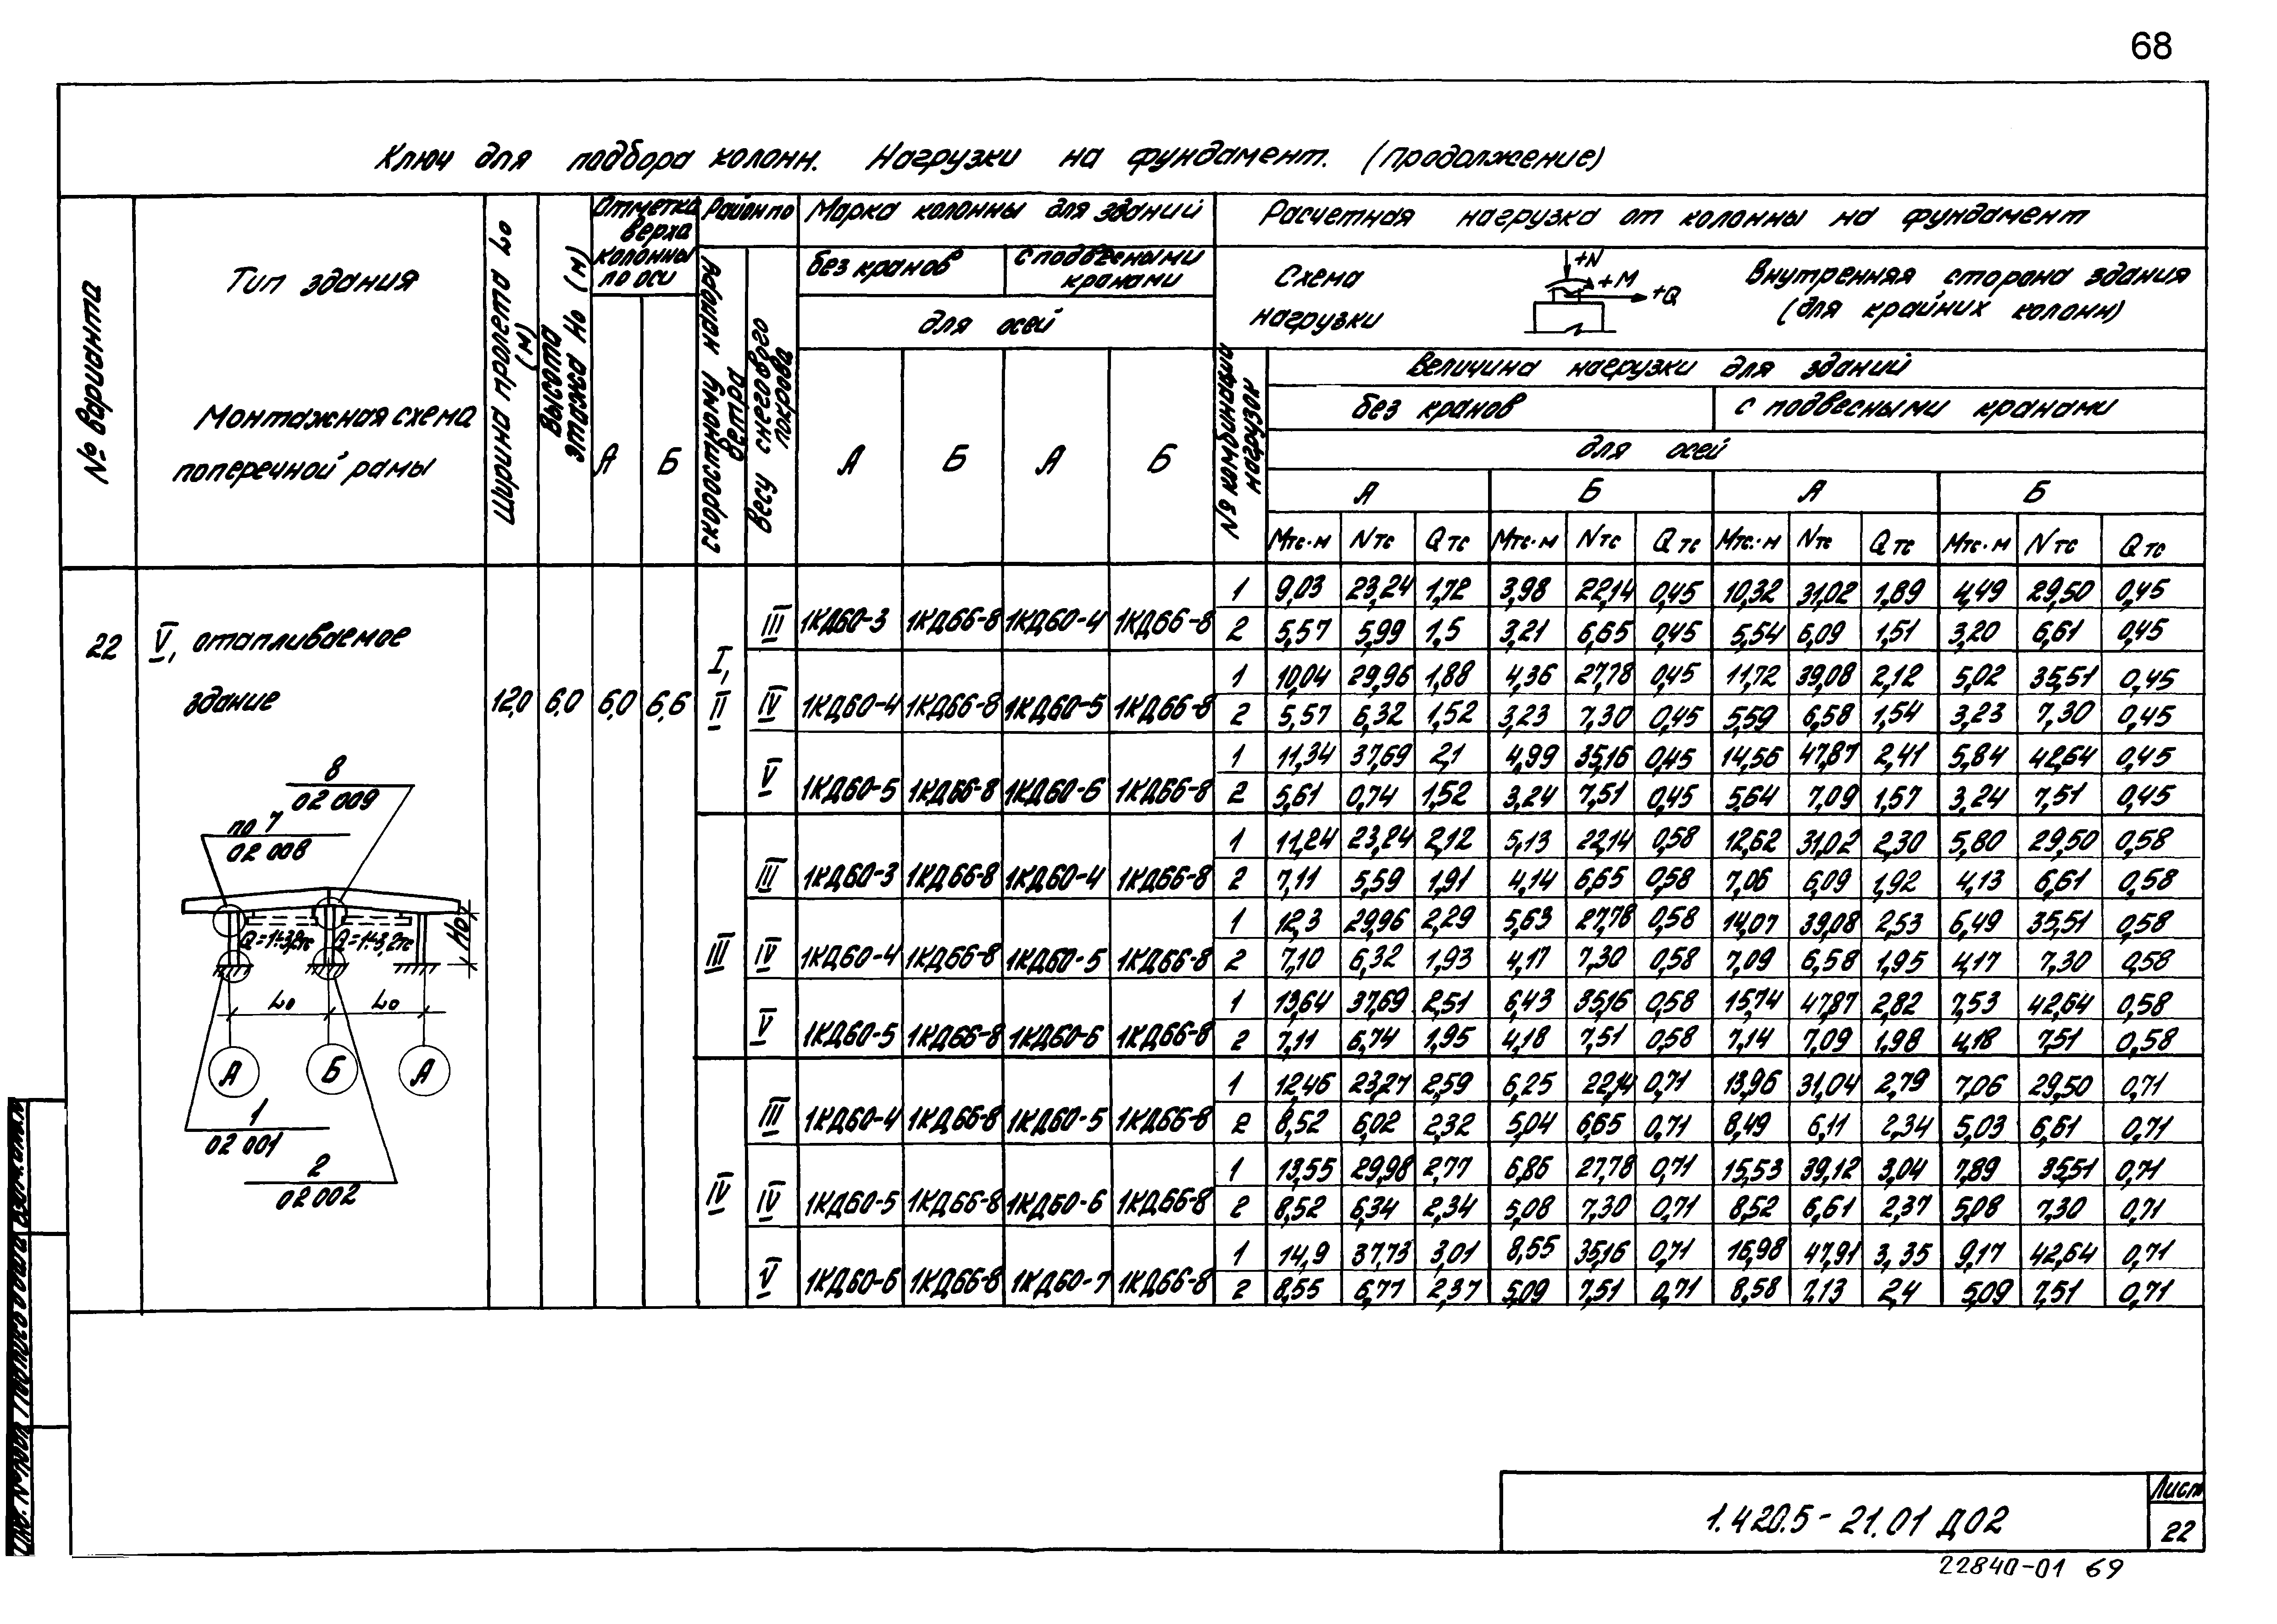 68
Ключ для подбора колонн. Нагрузки на фундамент. (Продолжение)
№ варианта
Тип здания
Монтажная схема
поперечной рамы
Ширина пролета L₀ (м)
Высота этажа H₀ (м)
Отметка верха колонны по оси
А Б
Район по
скоростному напору ветра
весу снегового покрова
Марка колонны для зданий
без кранов с подвесными кранами
для осей
А Б А Б
Расчетная нагрузка от колонны на фундамент
Схема нагрузки
+N
+M
+Q
Внутренняя сторона здания
(для крайних колонн)
№ комбинации нагрузок
Величина нагрузки для зданий
без кранов с подвесными кранами
для осей
А Б А Б
Мтс·м Nтс Qтс Мтс·м Nтс Qтс Мтс·м Nтс Qтс Мтс·м Nтс Qтс
22 V, отапливаемое
здание
12,0 6,0 6,0 6,6
I, II
III 1КД60-3 1КД66-8 1КД60-4 1КД66-8
1 9,03 23,24 1,72 3,98 22,14 0,45 10,32 31,02 1,89 4,49 29,50 0,45
2 5,57 5,99 1,5 3,21 6,65 0,45 5,54 6,09 1,51 3,20 6,61 0,45
IV 1КД60-4 1КД66-8 1КД60-5 1КД66-8
1 10,04 29,96 1,88 4,36 27,78 0,45 11,72 39,08 2,12 5,02 35,51 0,45
2 5,57 6,32 1,52 3,23 7,30 0,45 5,59 6,58 1,54 3,23 7,30 0,45
V 1КД60-5 1КД66-8 1КД60-6 1КД66-8
1 11,34 37,69 2,1 4,99 35,16 0,45 14,56 47,87 2,41 5,84 42,64 0,45
2 5,61 0,74 1,52 3,24 7,51 0,45 5,64 7,09 1,57 3,24 7,51 0,45
III
III 1КД60-3 1КД66-8 1КД60-4 1КД66-8
1 11,24 23,24 2,12 5,13 22,14 0,58 12,62 31,02 2,30 5,80 29,50 0,58
2 7,11 5,59 1,91 4,14 6,65 0,58 7,06 6,09 1,92 4,13 6,61 0,58
IV 1КД60-4 1КД66-8 1КД60-5 1КД66-8
1 12,3 29,96 2,29 5,63 27,78 0,58 14,07 39,08 2,53 6,49 35,51 0,58
2 7,10 6,32 1,93 4,17 7,30 0,58 7,09 6,58 1,95 4,17 7,30 0,58
V 1КД60-5 1КД66-8 1КД60-6 1КД66-8
1 13,64 37,69 2,51 6,43 35,16 0,58 15,74 47,87 2,82 7,53 42,64 0,58
2 7,11 6,74 1,95 4,18 7,51 0,58 7,14 7,09 1,98 4,18 7,51 0,58
IV
III 1КД60-4 1КД66-8 1КД60-5 1КД66-8
1 12,46 23,27 2,59 6,25 22,14 0,71 13,96 31,04 2,79 7,06 29,50 0,71
2 8,52 6,02 2,32 5,04 6,65 0,71 8,49 6,11 2,34 5,03 6,61 0,71
IV 1КД60-5 1КД66-8 1КД60-6 1КД66-8
1 13,55 29,98 2,77 6,86 27,78 0,71 15,53 39,12 3,04 7,89 35,51 0,71
2 8,52 6,34 2,34 5,08 7,30 0,71 8,52 6,61 2,37 5,08 7,30 0,71
V 1КД60-6 1КД66-8 1КД60-7 1КД66-8
1 14,9 37,73 3,01 8,55 35,16 0,71 16,98 47,91 3,35 9,17 42,64 0,71
2 8,55 6,77 2,37 5,09 7,51 0,71 8,58 7,13 2,4 5,09 7,51 0,71
8
02 009
по 7
02 008
Q=1÷3,2тс Q=1÷3,2тс
H₀
L₀ L₀
А Б А
1
02 001
2
02 002
1.420.5-21.01 Д02
Лист
22
22840-01 69